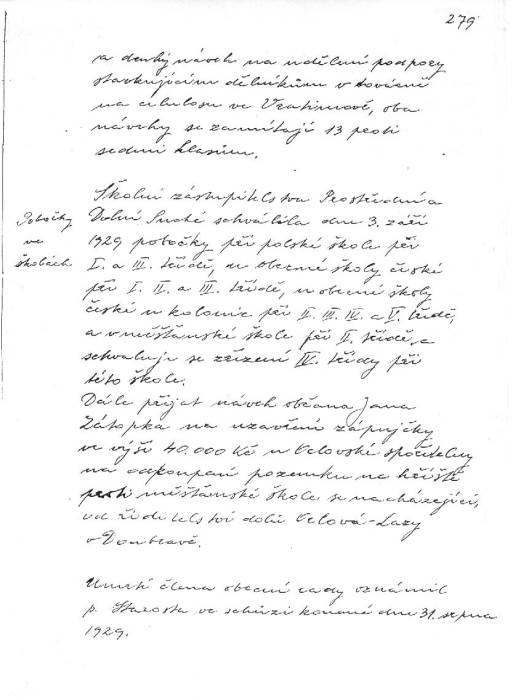 279
a druhý návrh na udělení podpory
stávkujícím dělníkům v továrně
na celulosu ve Vratimově, oba
návrhy se zamítají 13 proti
sedmi hlasům.
Školní zastupitelstva Prostřední a
Pobočky
ve
školách
Dolní Suché schválila dne 3. září
1929 pobočky při polské škole při
I. a III. třídě, u obecné školy české
při I. II. a III. třídě, u obecné školy
české u kolonie při II. III. IV. a V. třídě,
a v měšťanské škole při II. třídě, a
schvaluje se zřízení IV. třídy při
této škole.
Dále přijat návrh občana Jana
Zátopka na uzavření zápujčky
ve výši 40.000 Kč u Orlovské spořitelny
na odkoupení pozemku na hřiště
proti měšťanské škole se nacházející,
od ředitelství dolů Orlová-Lazy
v Doubravě.
Úmrtí člena obecní rady oznámil
p. Starosta ve schůzi konané dne 31. srpna
1929.